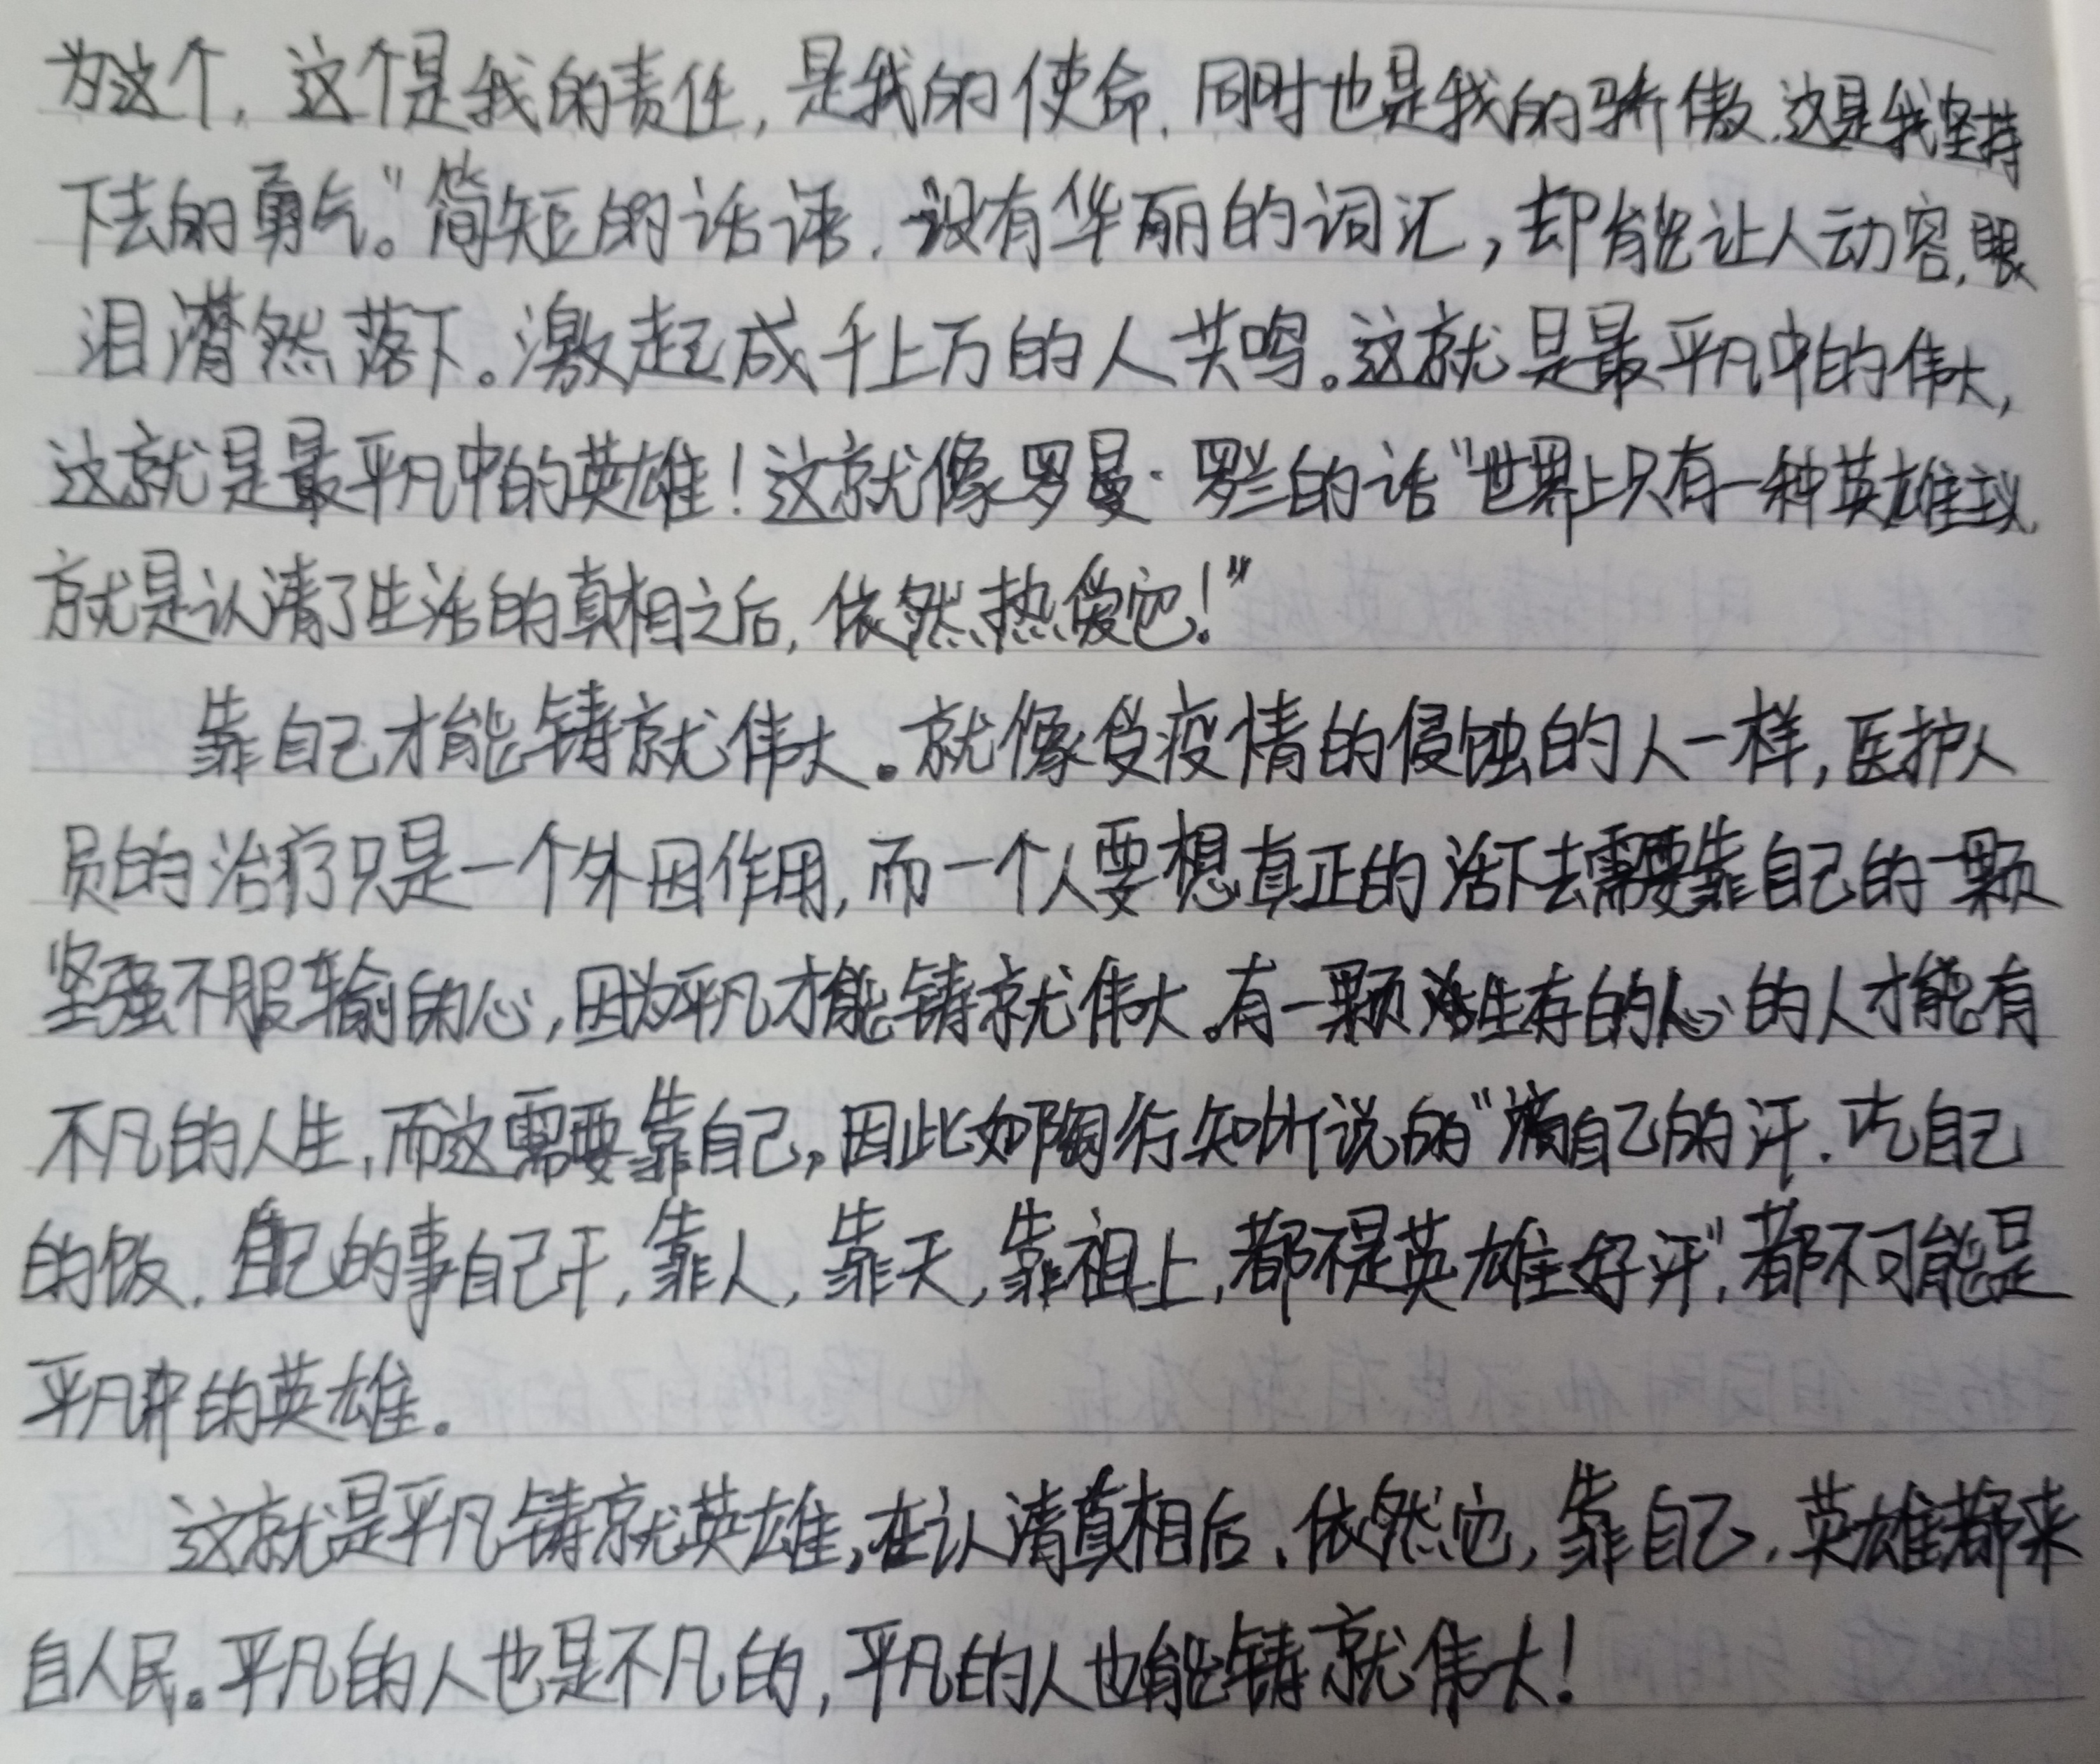 为这个，这个是我的责任，是我的使命，同时也是我的骄傲，这是我坚持
下去的勇气。”简短的话语，没有华丽的词汇，却能让人动容，眼
泪潸然落下。激起成千上万的人共鸣。这就是最平凡中的伟大，
这就是最平凡中的英雄！这就像罗曼·罗兰的话“世界上只有一种英雄主义
就是认清了生活的真相之后，依然热爱它！”
靠自己才能铸就伟大。就像受疫情的侵蚀的人一样，医护人
员的治疗只是一个外因作用，而一个人要想真正的活下去需要靠自己的一颗
坚强不服输的心，因为平凡才能铸就伟大。有一颗生存的心的人才能有
不凡的人生，而这需要靠自己。因此如陶行知所说的“滴自己的汗，吃自己
的饭，自己的事自己干，靠人，靠天，靠祖上，都不是英雄好汗”，都不可能是
平凡中的英雄。
这就是平凡铸就英雄，在认清真相后，依然它，靠自己，英雄都来
自人民。平凡的人也是不凡的，平凡的人也能铸就伟大！